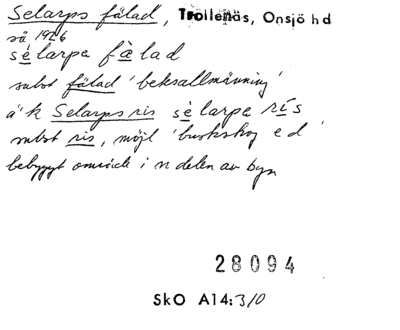 Selarps fälad, Trollenäs, Onsjö hd
så 1926
sèlarpa fàlad
subst fälad 'beksallmänning'
ä'k Selarps ris sèlarpa rís
subst ris, möjl 'buskskog e d'
bebyggt område i n delen av byn
28094
SkO A14:310